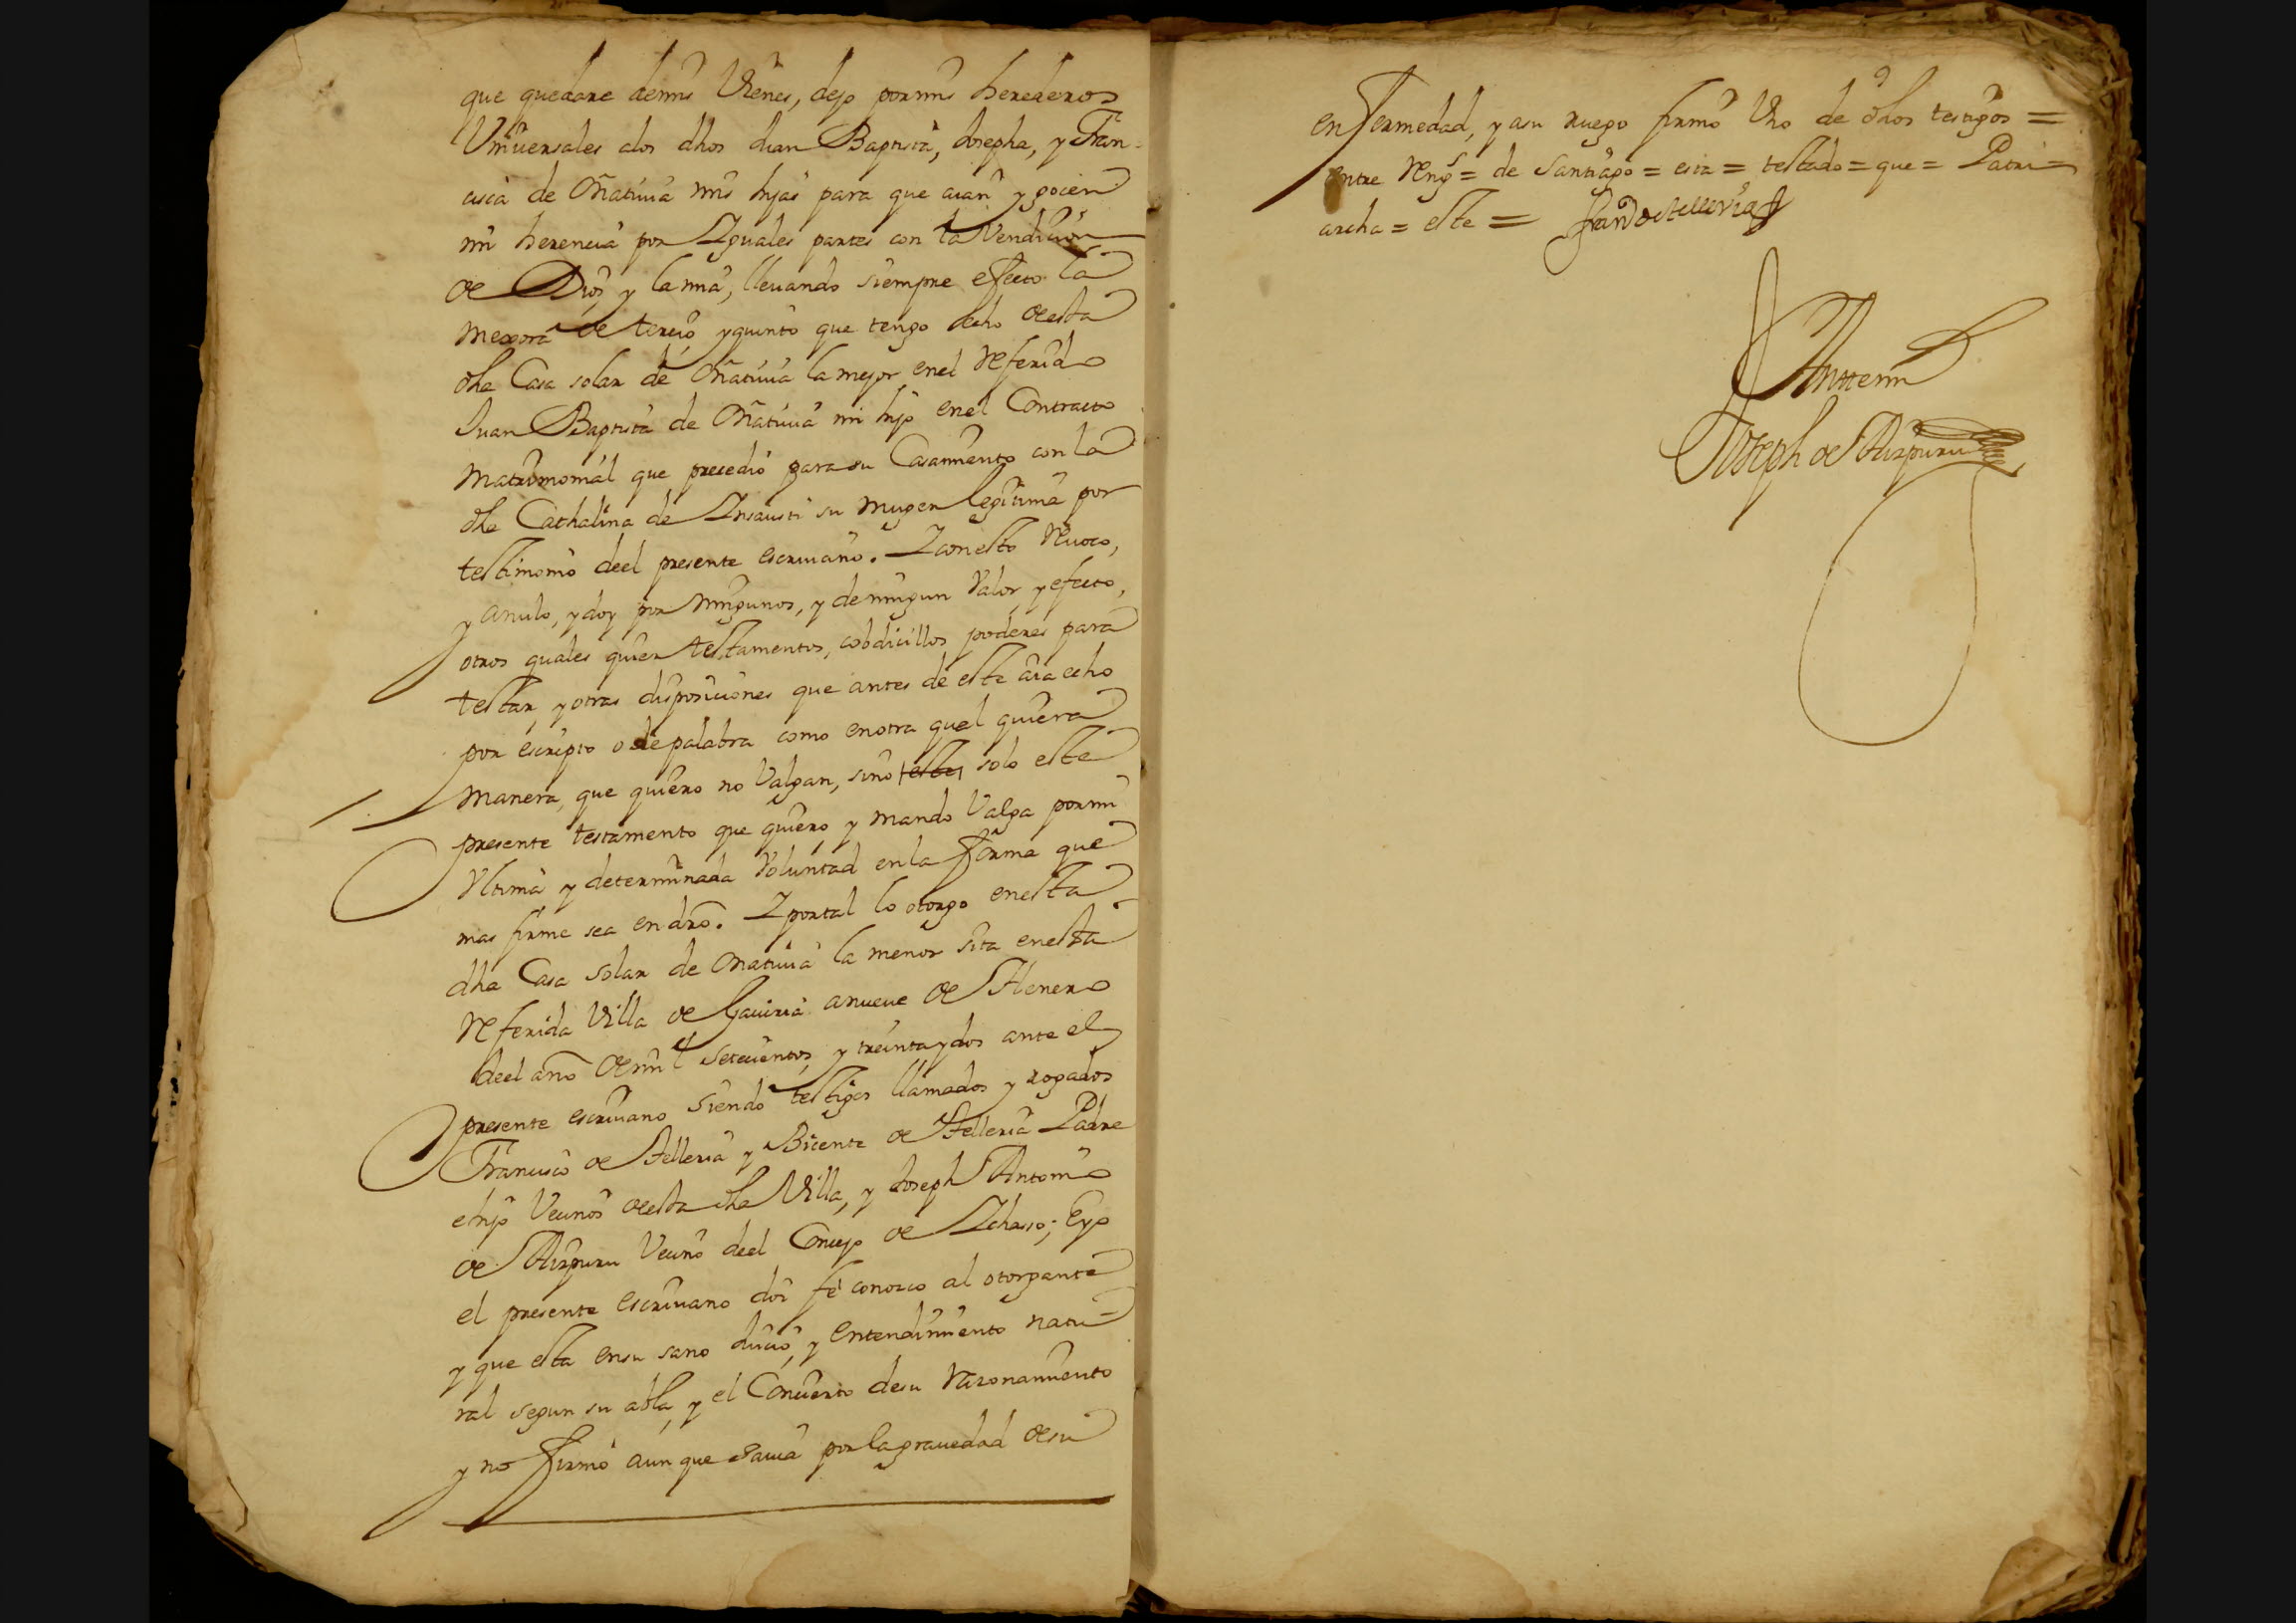 que quedare demis Vienes, dejo pormis herederos
Vniuersales alos dhos Juan Baptista, Josepha, y Fran-
cisca de Oñatiuia mis hijas para que aian y gocen
mi herencia por Iguales partes con la Vendicion
de Dios y la mia, lleuando siempre efecto la
mexora de tercio, yquinto que tengo echo deesta
dha Casa solar de Oñatiuia la mejor enel referido
Juan Baptista de Oñatiuia mi hijo enel Contracto
matrimonial que precedio para su Casamiento con la
dha Cathalina de Insausti su muger legitima por
testimonio deel presente escriuano. I conesto reuoco,
y anulo, ydoy por ningunos, y deningun Valor, y efecto,
otros quales quier testamentos, cobdicillos, poderes para
testar, y otras disposiciones que antes de este aia echo
por escripto o depalabra como enotra qual quiera
manera, que quiero no Valgan, sino este solo este
presente testamento que quiero y mando Valga pormi
Vltima y determinada Voluntad enla forma que
mas firme sea en dro. I portal lo otorgo enesta
dha Casa solar de Oñatiuia la menor sita enesta
referida Villa de Gauiria anueue de Henero
deel año demil setecientos, y treinta y dos ante el
presente escriuano siendo testigos llamados y rogados
Francisco de Telleria y Bicente de Telleria Padre
e hijo Vecinos deesta dha Villa, y Joseph Antonio
de Aizpuru Vecino deel Concejo de Ichasso; Eyo
el presente escriuano doi fe conozco al otorgante
y que esta ensu sano Juicio, y entendimiento natu=
ral segun su abla, y el Concierto desu razonamiento
y no firmó aun que sauia por lagrauedad desu
enfermedad, y asu ruego firmó Vno de dhos testigos =
entre rengs = de Santiago = esta = testado = que = Patri=
archa = este = Fran.co de Telleria
Antemi
Joseph de Aizpuru